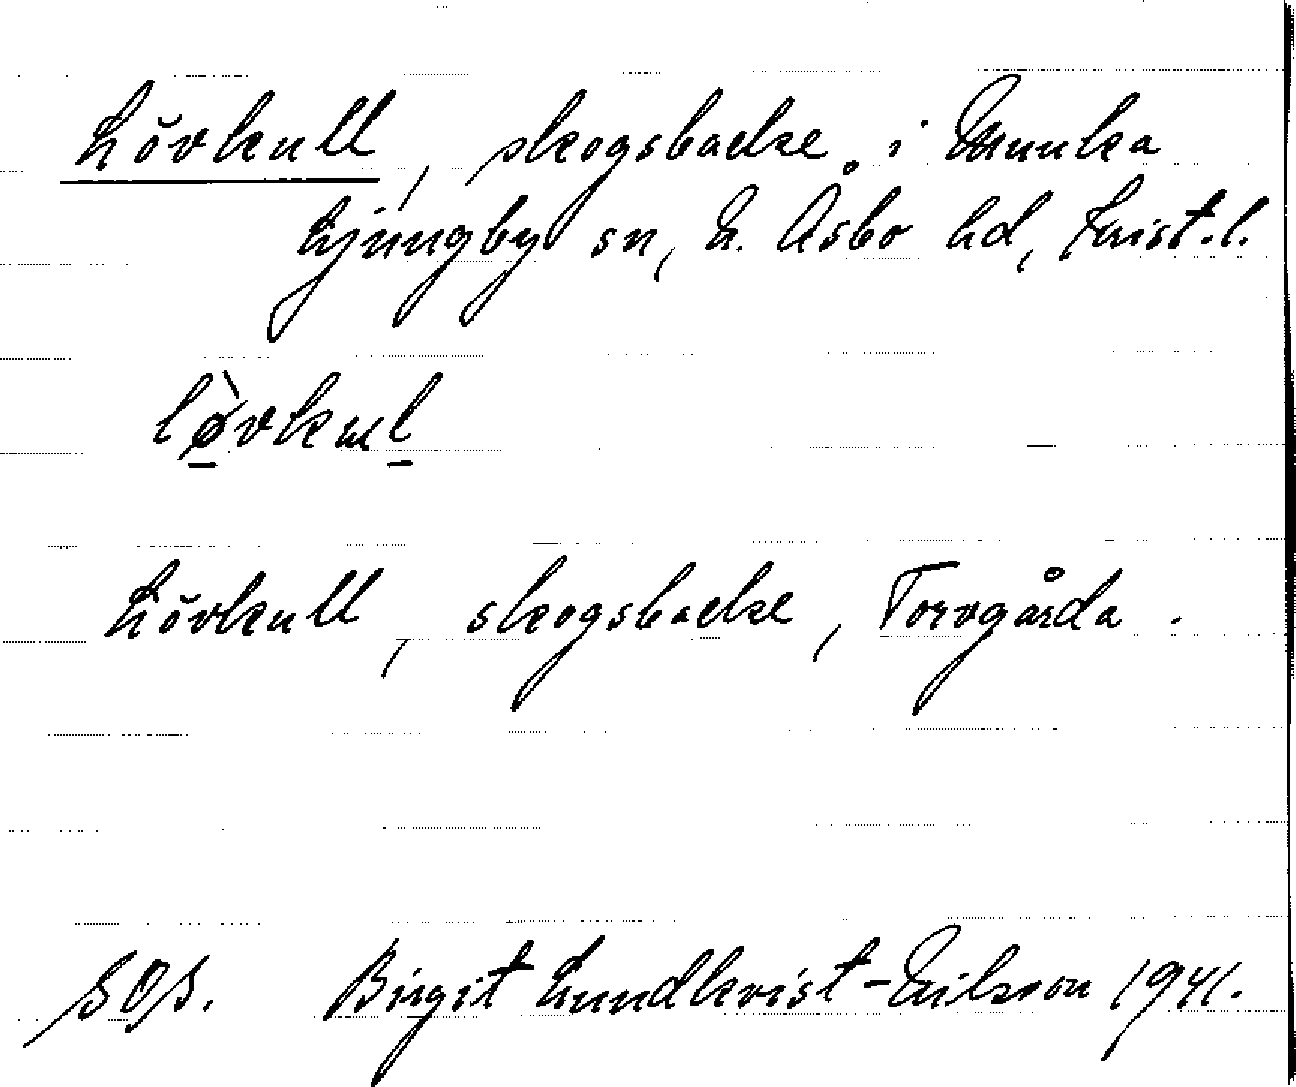 Lövkull, skogsbacke i Munka
Ljungby sn, N. Åsbo hd, Krist. l.
lø̀vkul
Lövkull, skogsbacke, Torvgårda.
SOS. Birgit Lundkvist-Nilsson 1941.